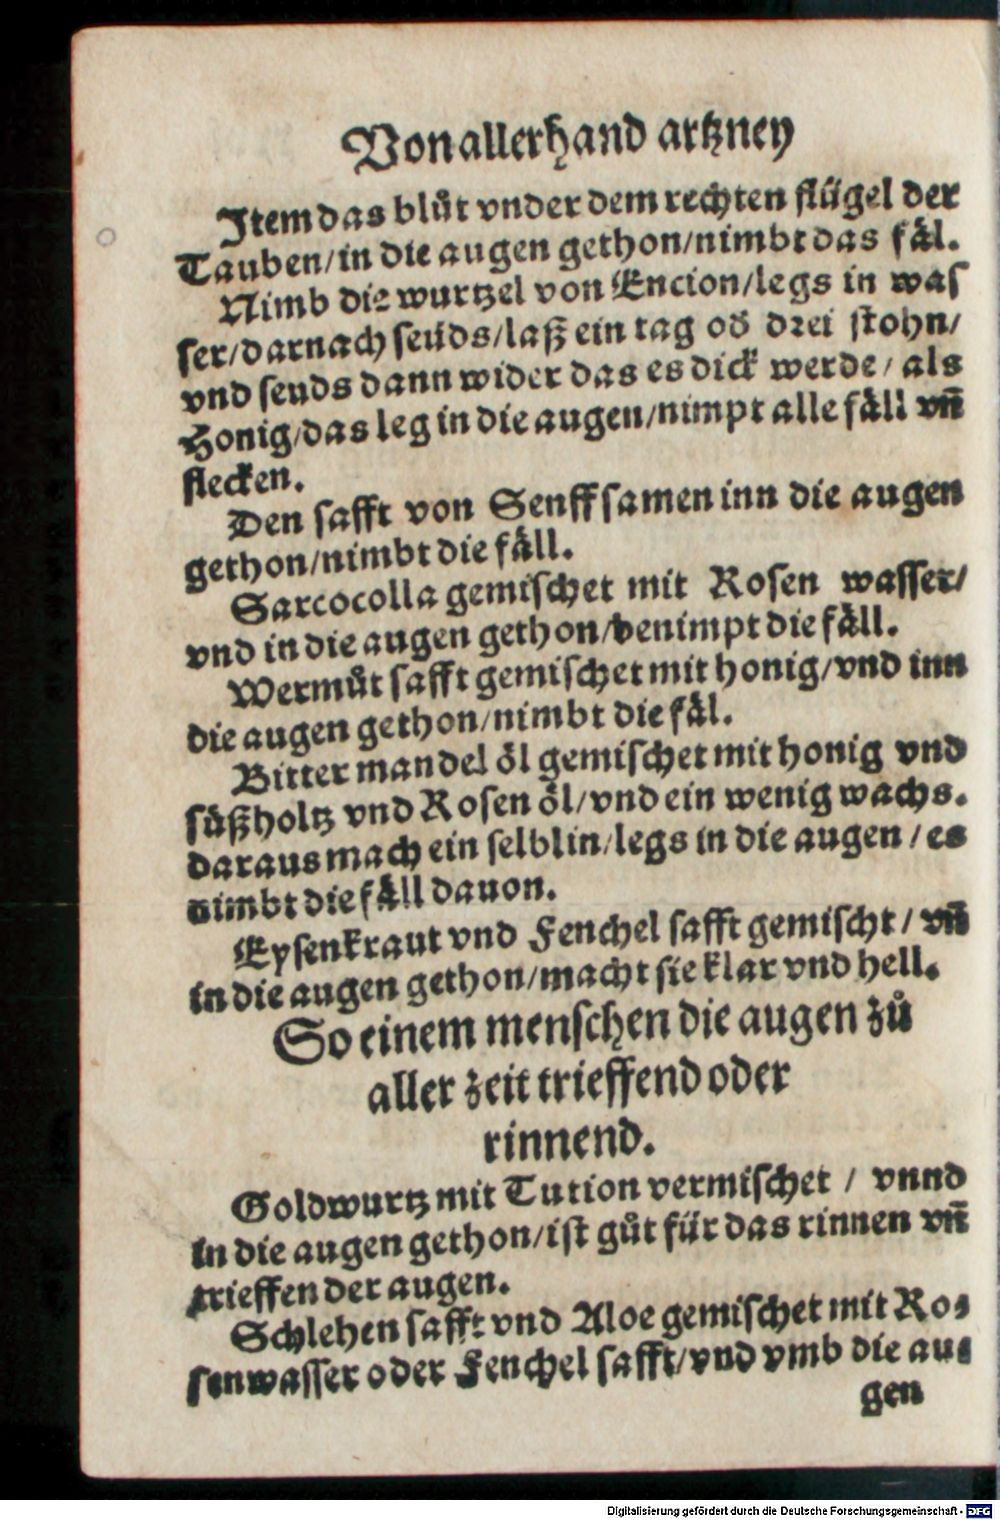 Von allerhand artzney
Item das blůt vnder dem rechten flügel der
Tauben/in die augen gethon/nimbt das fäl.
Nimb die wurtzel von Encion/legs in was
ser/darnach seüds/laß ein tag oð drei stohn/
vnd seuds dann wider das es dick werde/ als
Honig/das leg in die augen/nimpt alle fäll vñ
flecken.
Den safft von Senffsamen inn die augen
gethon/nimbt die fäll.
Sarcocolla gemischet mit Rosen wasser/
vnd in die augen gethon/benimpt die fäll.
Wermůt safft gemischet mit honig/vnd inn
die augen gethon/nimbt die fäl.
Bitter mandel öl gemischet mit honig vnd
süßholtz vnd Rosen öl/vnd ein wenig wachs.
daraus mach ein selblin/legs in die augen/es
nimbt die fäll dauon.
Eysenkraut vnd Fenchel safft gemischt/ vñ
in die augen gethon/macht sie klar vnd hell.
So einem menschen die augen zů
aller zeit trieffend oder
rinnend.
Goldwurtz mit Tution vermischet / vnnd
in die augen gethon/ist gůt für das rinnen vñ
trieffen der augen.
Schlehen safft vnd Aloe gemischet mit Ro-
senwasser oder Fenchel safft/vnd vmb die au-
gen
Digitalisierung gefördert durch die Deutsche Forschungsgemeinschaft - DFG